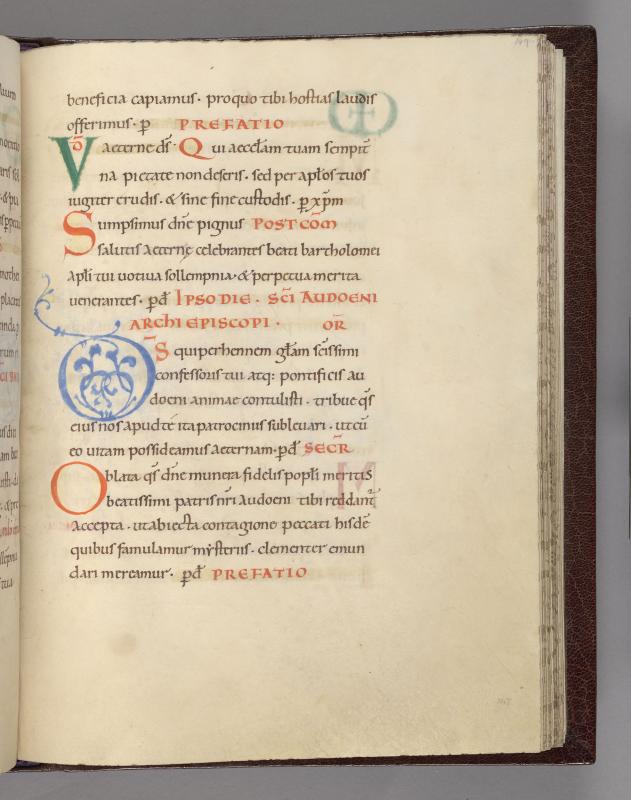 beneficia capiamus · pro quo tibi hostias laudis
offerimus · p̄ PREFATIO
VD̄ aeterne d̄s · Qui aeccl̄am tuam sempit̄
na pietate non deseris · sed per ap̄los tuos
iugiter erudis · & sine fine custodis · p̄ xp̄m
Sumpsimus dn̄e pignus POSTCOM̄
salutis aeternę celebrantes beati bartholomei
ap̄li tui uotiua sollempnia · & perpetua merita
uenerantes · p̄d̄ IPSO DIE · SC̄I AUDOENI
ARCHIEPISCOPI · OR̄
D̄S qui perhennem gl̄am sc̄issimi
confessoris tui atq: pontificis au
doeni animae contulisti · tribue q̄s
eius nos apud te ita patrociniis subleuari · ut cū
eo uitam possideamus aeternam · p̄d̄ SECR̄
Oblata q̄s dn̄e munera fidelis popl̄i meritis
beatissimi patris nr̄i audoeni tibi reddant̄
accepta · ut abiecta contagione peccati hisdē
quibus famulamur mysteriis · clementer emun
dari mereamur · p̄d̄ PREFATIO